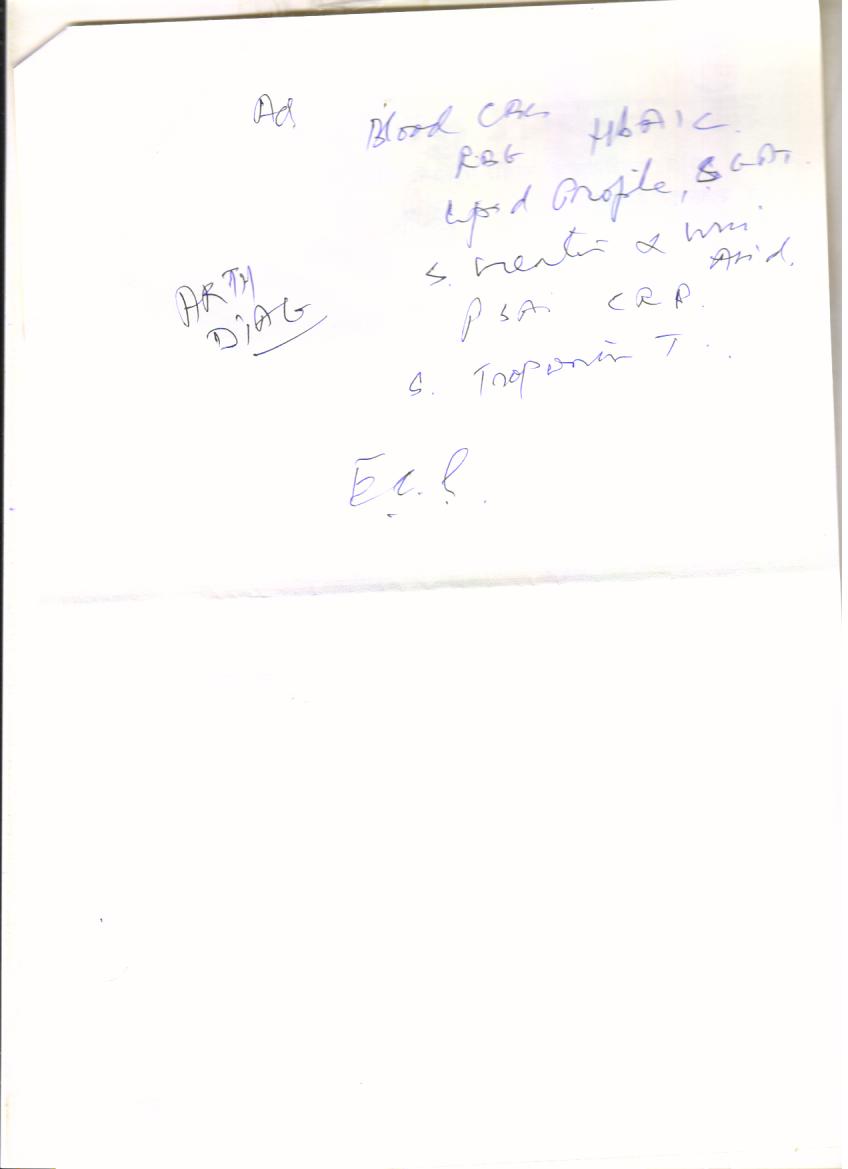 Ad Blood CBC
RBG HbA1C.
Lipid Profile, SGPT.
S. Creatinin & Uric
Acid.
ARTH
DiAG
PSA CRP.
S. Troponin T.
E.C.G.